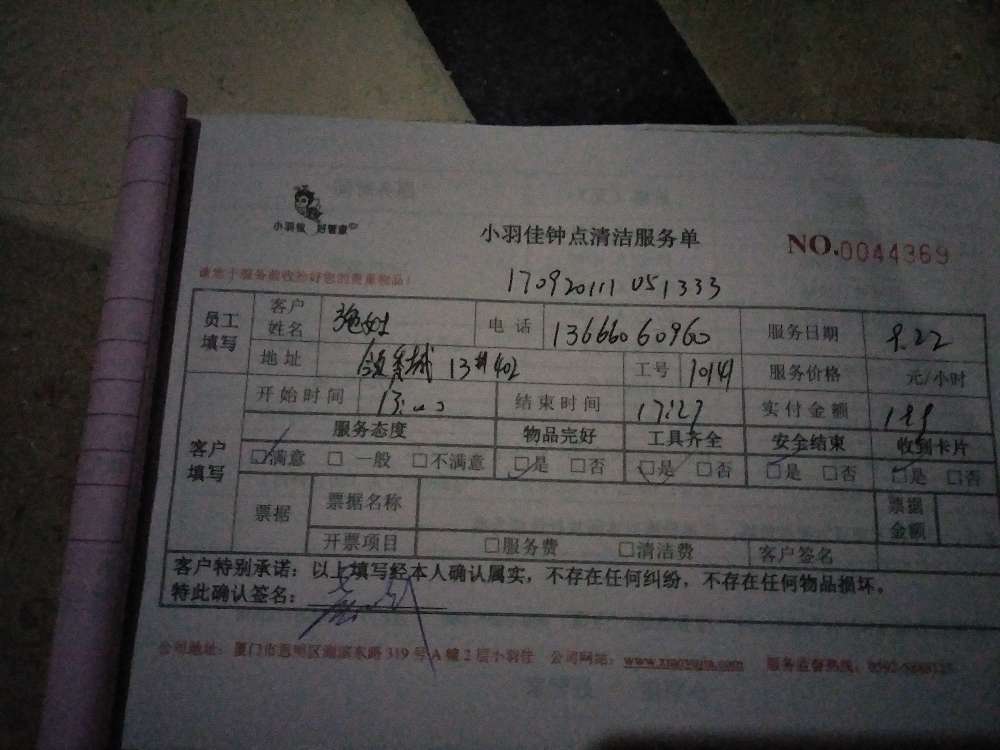 小羽佳 好管家
小羽佳钟点清洁服务单
NO.0044369
请您于服务前收拾好您的贵重物品!
170920111 051333
员工填写 客户姓名 施女士 电话 13666060960 服务日期 9.22
地址 13#402 工号 10141 服务价格 元/小时
客户填写 开始时间 13:00 结束时间 17:27 实付金额 189
服务态度 物品完好 工具齐全 安全结束 收到卡片
☑满意 □一般 □不满意 ☑是 □否 ☑是 □否 ☑是 □否 ☑是 □否
票据 票据名称 票据金额
开票项目 □服务费 □清洁费 客户签名
客户特别承诺:以上填写经本人确认属实,不存在任何纠纷,不存在任何物品损坏。
特此确认签名:
公司地址:厦门市思明区湖滨东路319号A幢2层小羽佳 公司网站:www.xiaoyujia.com 服务监督热线: